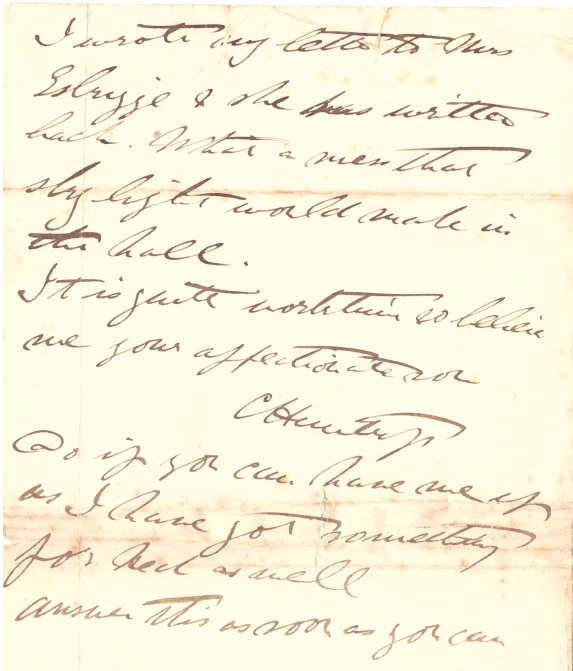 I wrote my letter to Mrs
Esbrigge & she has written
back. What a mess that
sky light would make in
the hall.
It is quite worktime so believe
me your affectionate son
C H
Do if you can have me up
as I have got something
for as well
answer this as soon as you can